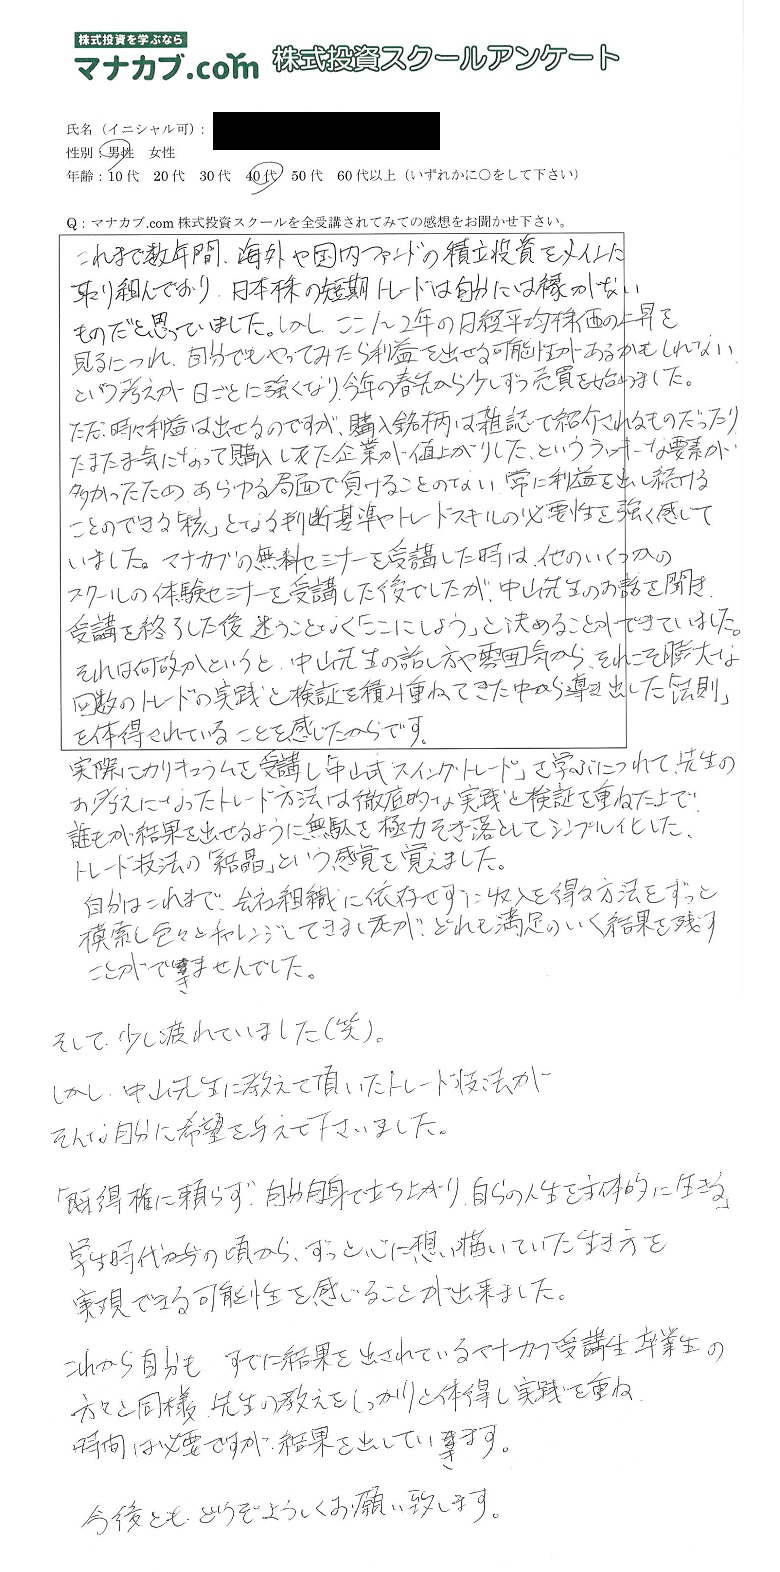 株式投資を学ぶなら
マナカブ.com 株式投資スクールアンケート
氏名（イニシャル可）：
性別：男性　女性
年齢：10代　20代　30代　40代　50代　60代以上（いずれかに○をして下さい）
Q：マナカブ.com 株式投資スクールを全受講されてみての感想をお聞かせ下さい。
これまで数年間、海外や国内ファンドの積立投資をメインに
取り組んでおり、日本株の短期トレードは自分には縁がない
ものだと思っていました。しかし、ここ1〜2年の日経平均株価の上昇を
見るにつれ、自分でもやってみたら利益を出せる可能性があるかもしれない
という考えが日ごとに強くなり、今年の春先から少しずつ売買を始めました。
ただ、時々利益は出せるのですが、購入銘柄は雑誌で紹介されるものだったり
たまたま気になって購入した企業が値上がりした、というラッキーな要素が
多かったため、あらゆる局面で負けることのない、常に利益を出し続ける
ことのできる「核」となる判断基準やトレードスキルの必要性を強く感じて
いました。マナカブの無料セミナーを受講した時は、他のいくつかの
スクールの体験セミナーを受講した後でしたが、中山先生のお話を聞き、
受講を終了した後、迷うことなく「ここにしよう」と決めることができていました。
それは何故かというと、中山先生の話し方や雰囲気から、それこそ膨大な
回数のトレードの実践と検証を積み重ねてきた中から導き出した「法則」
を体得されていることを感じたからです。
実際にカリキュラムを受講し「中山式スイングトレード」を学ぶにつれて、先生の
お考えになったトレード方法は徹底的な実践と検証を重ねた上で、
誰もが結果を出せるように無駄を極力そぎ落としてシンプル化した、
トレード技法の「結晶」という感覚を覚えました。
自分はこれまで、会社組織に依存せずに収入を得る方法をずっと
模索し色々とチャレンジしてきましたが、どれも満足のいく結果を残す
ことができませんでした。
そして、少し疲れていました(笑)。
しかし、中山先生に教えて頂いたトレード技法が
そんな自分に希望を与えて下さいました。
「既得権に頼らず、自分自身で立ち上がり、自らの人生を主体的に生きる」
学生時代の頃から、ずっと心に想い描いていた生き方を
実現できる可能性を感じることが出来ました。
これから自分も、すでに結果を出されているマナカブ受講生、卒業生の
方々と同様、先生の教えをしっかりと体得し実践を重ね、
時間は必要ですが、結果を出していきます。
今後とも、どうぞよろしくお願い致します。